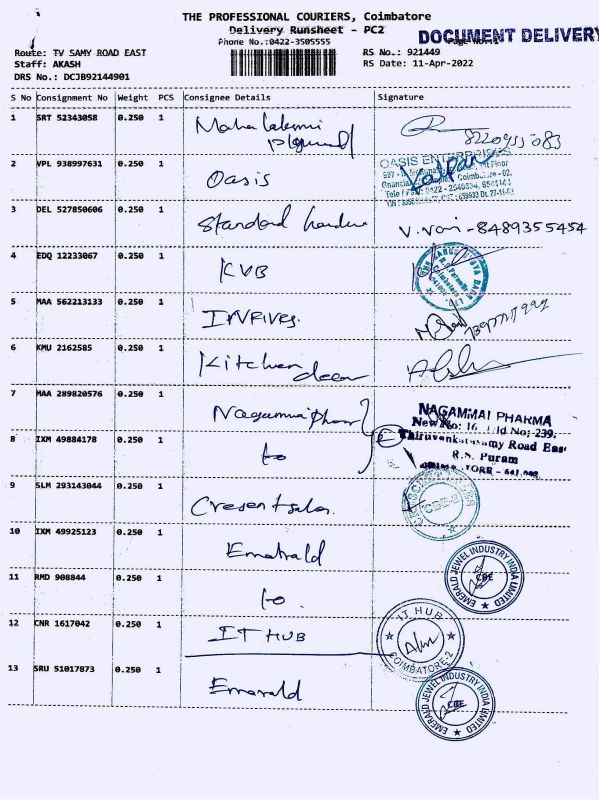 THE PROFESSIONAL COURIERS, Coimbatore
Delivery Runsheet - PC2
DOCUMENT DELIVERY
Phone No.:0422-3505555
Page No.:1
Route: TV SAMY ROAD EAST
RS No.: 921449
Staff: AKASH
RS Date: 11-Apr-2022
DRS No.: DCJB92144901
S No Consignment No Weight PCS Consignee Details Signature
1 SRT 52343058 0.250 1 Maha lakshmi 8220955083
2 VPL 938997631 0.250 1 Oasis
OASIS ENTERPRISES
3 DEL 527850606 0.250 1 Standard V. Vani - 8489355454
4 EDQ 12233067 0.250 1 KVB
5 MAA 562213133 0.250 1 INFIVES.
6 KMU 2162585 0.250 1 Kitchen decor
7 MAA 289820576 0.250 1 Nagammai Pharma
NAGAMMAI PHARMA
New No: 16, Old No: 239,
Thiruvenkatasamy Road East
R.S. Puram
8 IXM 49884178 0.250 1 to
9 SLM 293143044 0.250 1 Cresent salon.
CBE-2
10 IXM 49925123 0.250 1 Emerald
EMERALD JEWEL INDUSTRY INDIA LIMITED
CBE
11 RMD 908844 0.250 1 to.
12 CNR 1617042 0.250 1 IT HUB
IT HUB
COIMBATORE-2
13 SRU 51017873 0.250 1 Emerald
EMERALD JEWEL INDUSTRY INDIA LIMITED
CBE